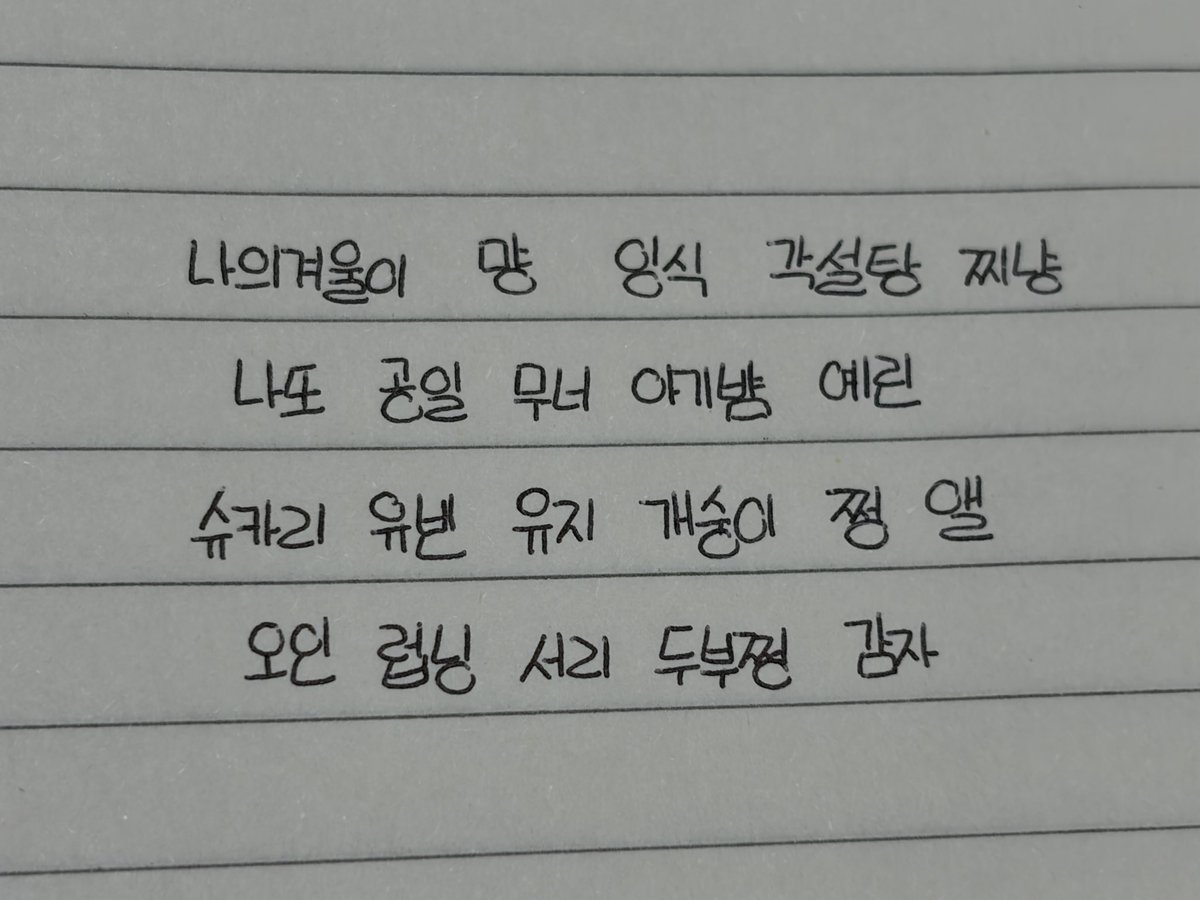 나의겨울이 먕 잉식 각설탕 찌냥
나또 공일 무너 야기뱜 예린
슈카리 유빈 유지 개숭이 쩡 앨
오인 럽닝 서리 두부쩡 감자